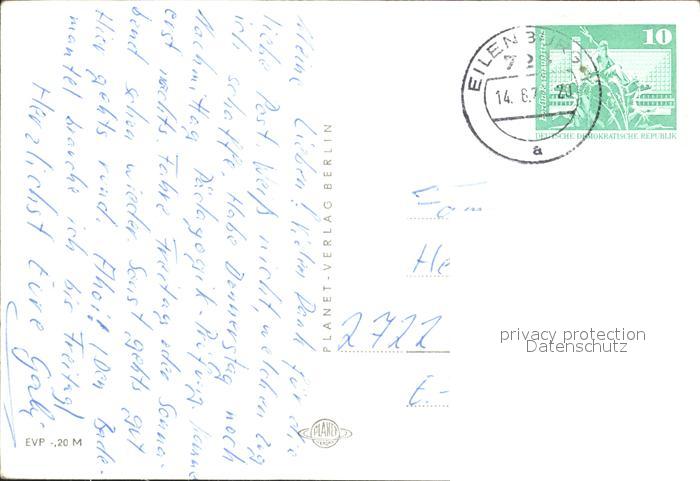 Meine Lieben! Vielen Dank für die
liebe Post. Weiß nicht, welchen Zug
ich schaffe. Habe Donnerstag noch
Nachm. Pädagogik-Prüfung. Komme
erst nachts. Fahre Freitag oder Sonna-
bend schon wieder. Sonst gehts gut
Hier gehts rund. Ahoi! (Den Bade-
mantel brauche ich bis Freitag)
Herzlichst Eure Gerti
EVP -,20 M
PLANET-VERLAG BERLIN
PLANET
EILENBURG
14. 6. 7
20
a
10
Berlin Rathausstraße
DEUTSCHE DEMOKRATISCHE REPUBLIK
Fam
He
2722
E.-
privacy protection
Datenschutz